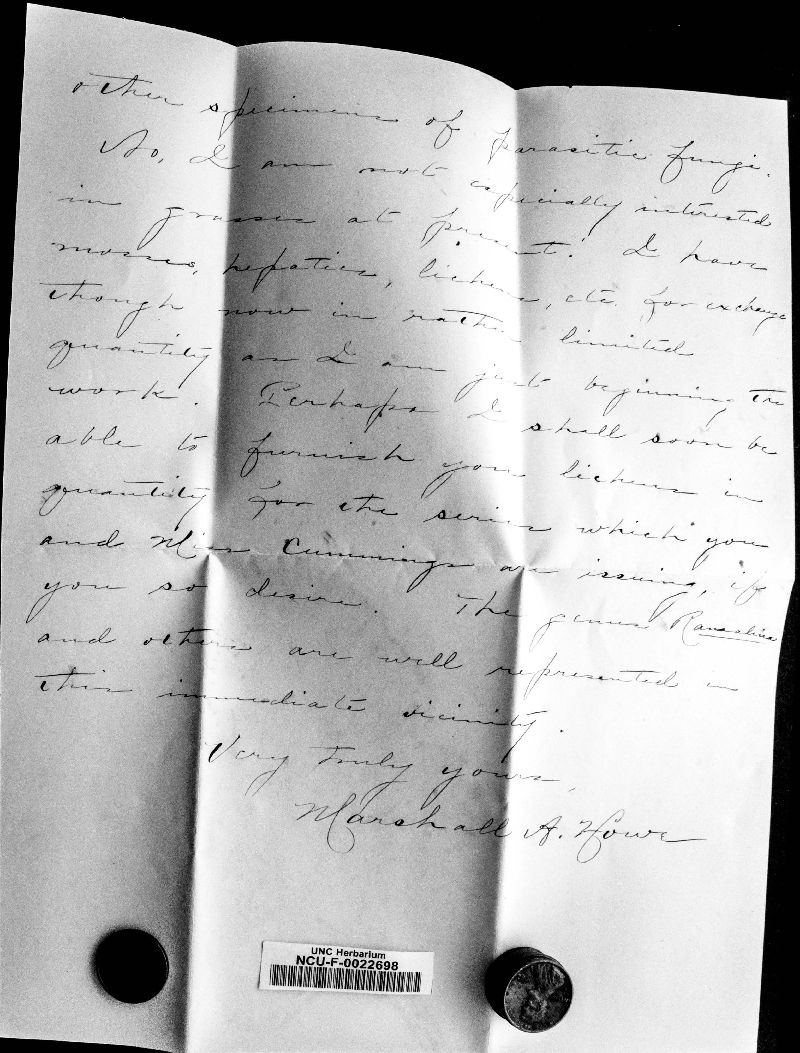 other specimens of parasitic fungi.
No, I am not especially interested
in grasses at present. I have
mosses, hepatics, lichens, etc. for exchange
though now in rather limited
quantity as I am just beginning the
work. Perhaps I shall soon be
able to furnish you lichens in
quantity for the series which you
and Miss Cummings are issuing, if
you so desire. The genus Ramalina
and others are well represented in
this immediate vicinity.
Very truly yours,
Marshall A. Howe
UNC Herbarium
NCU-F-0022698